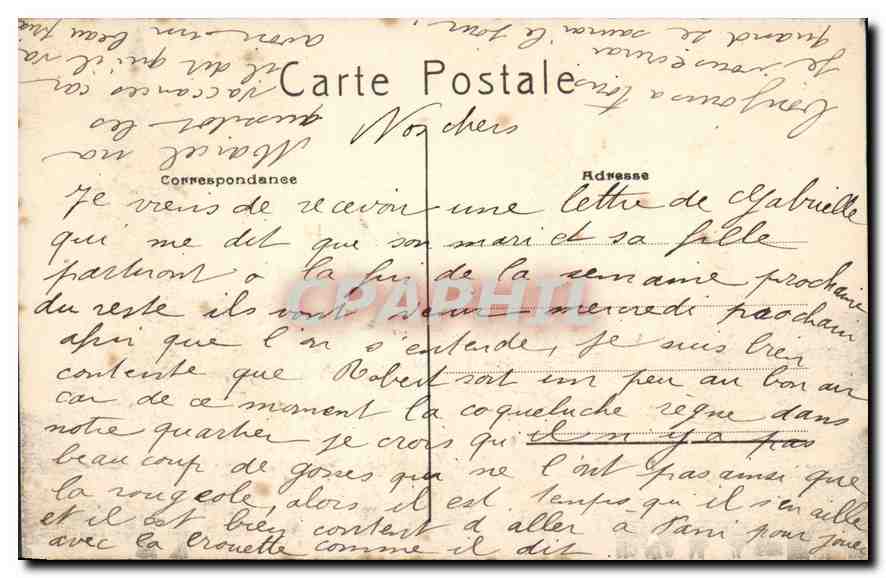 Carte Postale
Nos chers
Correspondance
Adresse
Je viens de recevoir une lettre de Gabrielle
qui me dit que son mari et sa fille
partiront a la fin de la semaine prochaine
du reste ils vont venir mercredi prochain
afin que l'on s'entende, Je suis bien
contente que Robert soit un peu au bon air
car de ce moment la coqueluche règne dans
notre quartier je crois qu'il n'y a pas
beaucoup de gosses qui ne l'ont pas ainsi que
la rougeole, alors il est temps qu'il s'en aille
et il est bien content d'aller a Pani pour jouer
avec la brouette comme il dit.
Marcel va
aussitot les
vaccances car
il dit qu'il va
avoir un beau
bonjours a tous
Je vous ecrirai
quand je saurai le jour,
CPAPHIL